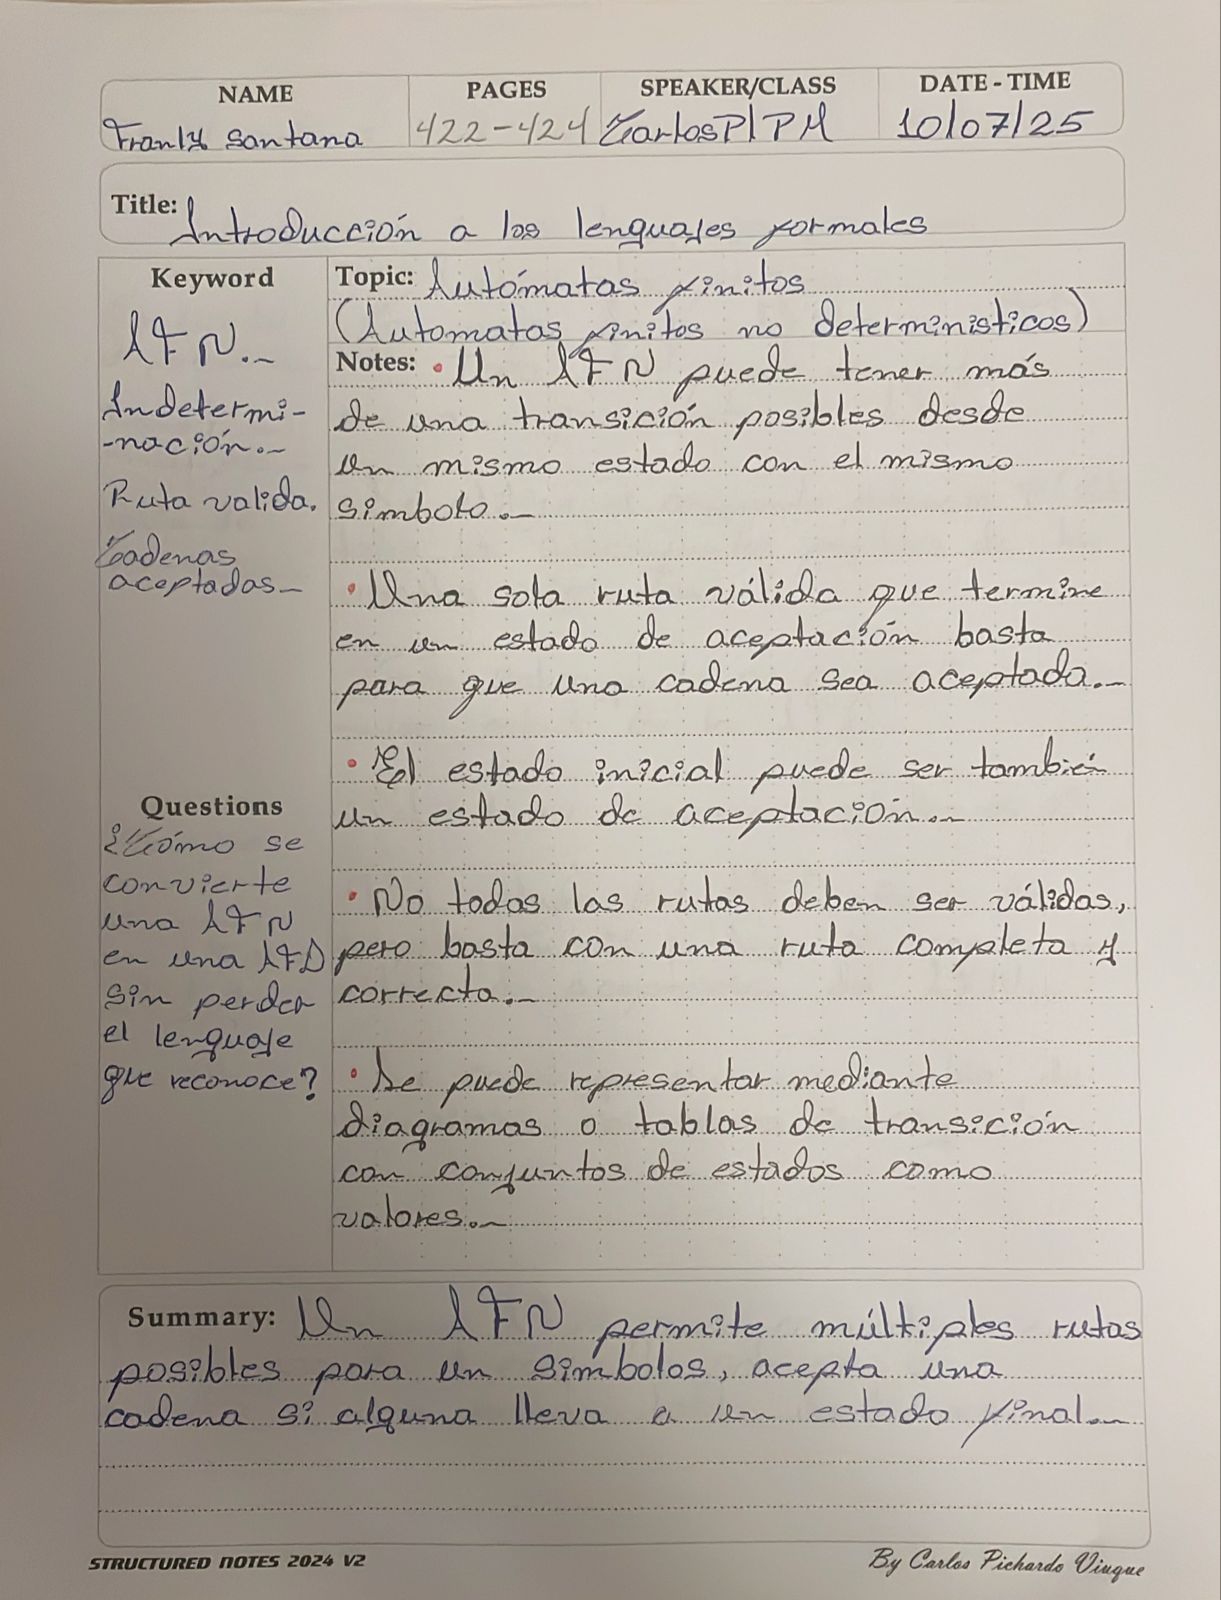 NAME
PAGES
SPEAKER/CLASS
DATE - TIME
Franly Santana
422-424
CarlosP/PM
10/07/25
Title: Introducción a los lenguajes formales
Keyword
AFN.-
Indetermi-
-nación.-
Ruta valida.
Cadenas
aceptadas-
Questions
¿Cómo se
convierte
una AFN
en una AFD
sin perder
el lenguaje
que reconoce?
Topic: Autómatas finitos
(Automatas finitos no deterministicos)
Notes: • Un AFN puede tener más
de una transición posibles desde
un mismo estado con el mismo
simbolo.-
• Una sola ruta válida que termine
en un estado de aceptación basta
para que una cadena sea aceptada.-
• El estado inicial puede ser también
un estado de aceptación.-
• No todas las rutas deben ser válidas,
pero basta con una ruta completa y
correcta.-
• Se puede representar mediante
diagramas o tablas de transición
con conjuntos de estados como
valores.-
Summary: Un AFN permite múltiples rutas
posibles para un simbolos, acepta una
cadena si alguna lleva a un estado final.-
STRUCTURED NOTES 2024 V2
By Carlos Pichardo Viuque